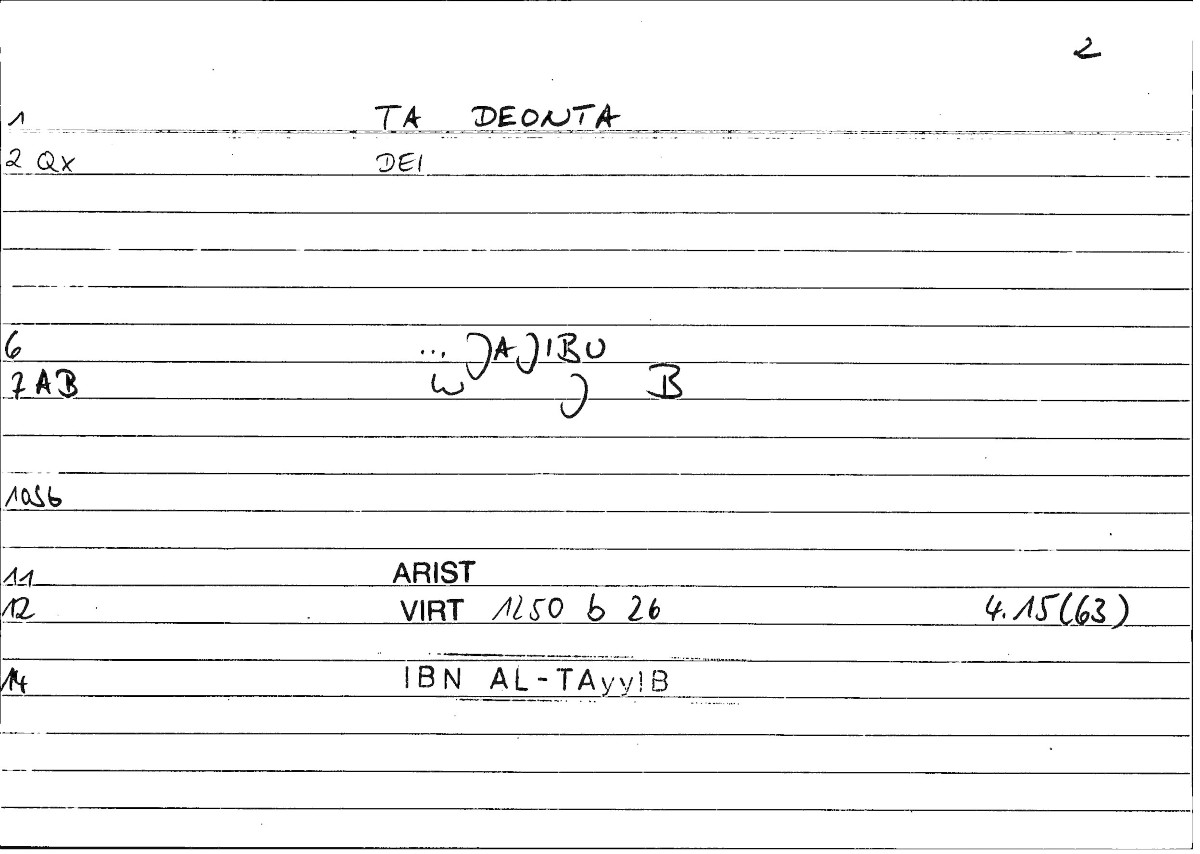 2
1 TA DEONTA
2 QX DEI
6 ... JAJIBU
7 AB W J B
10S6
11 ARIST
12 VIRT 1250 b 26 4.15(63)
14 IBN AL-TAyyIB